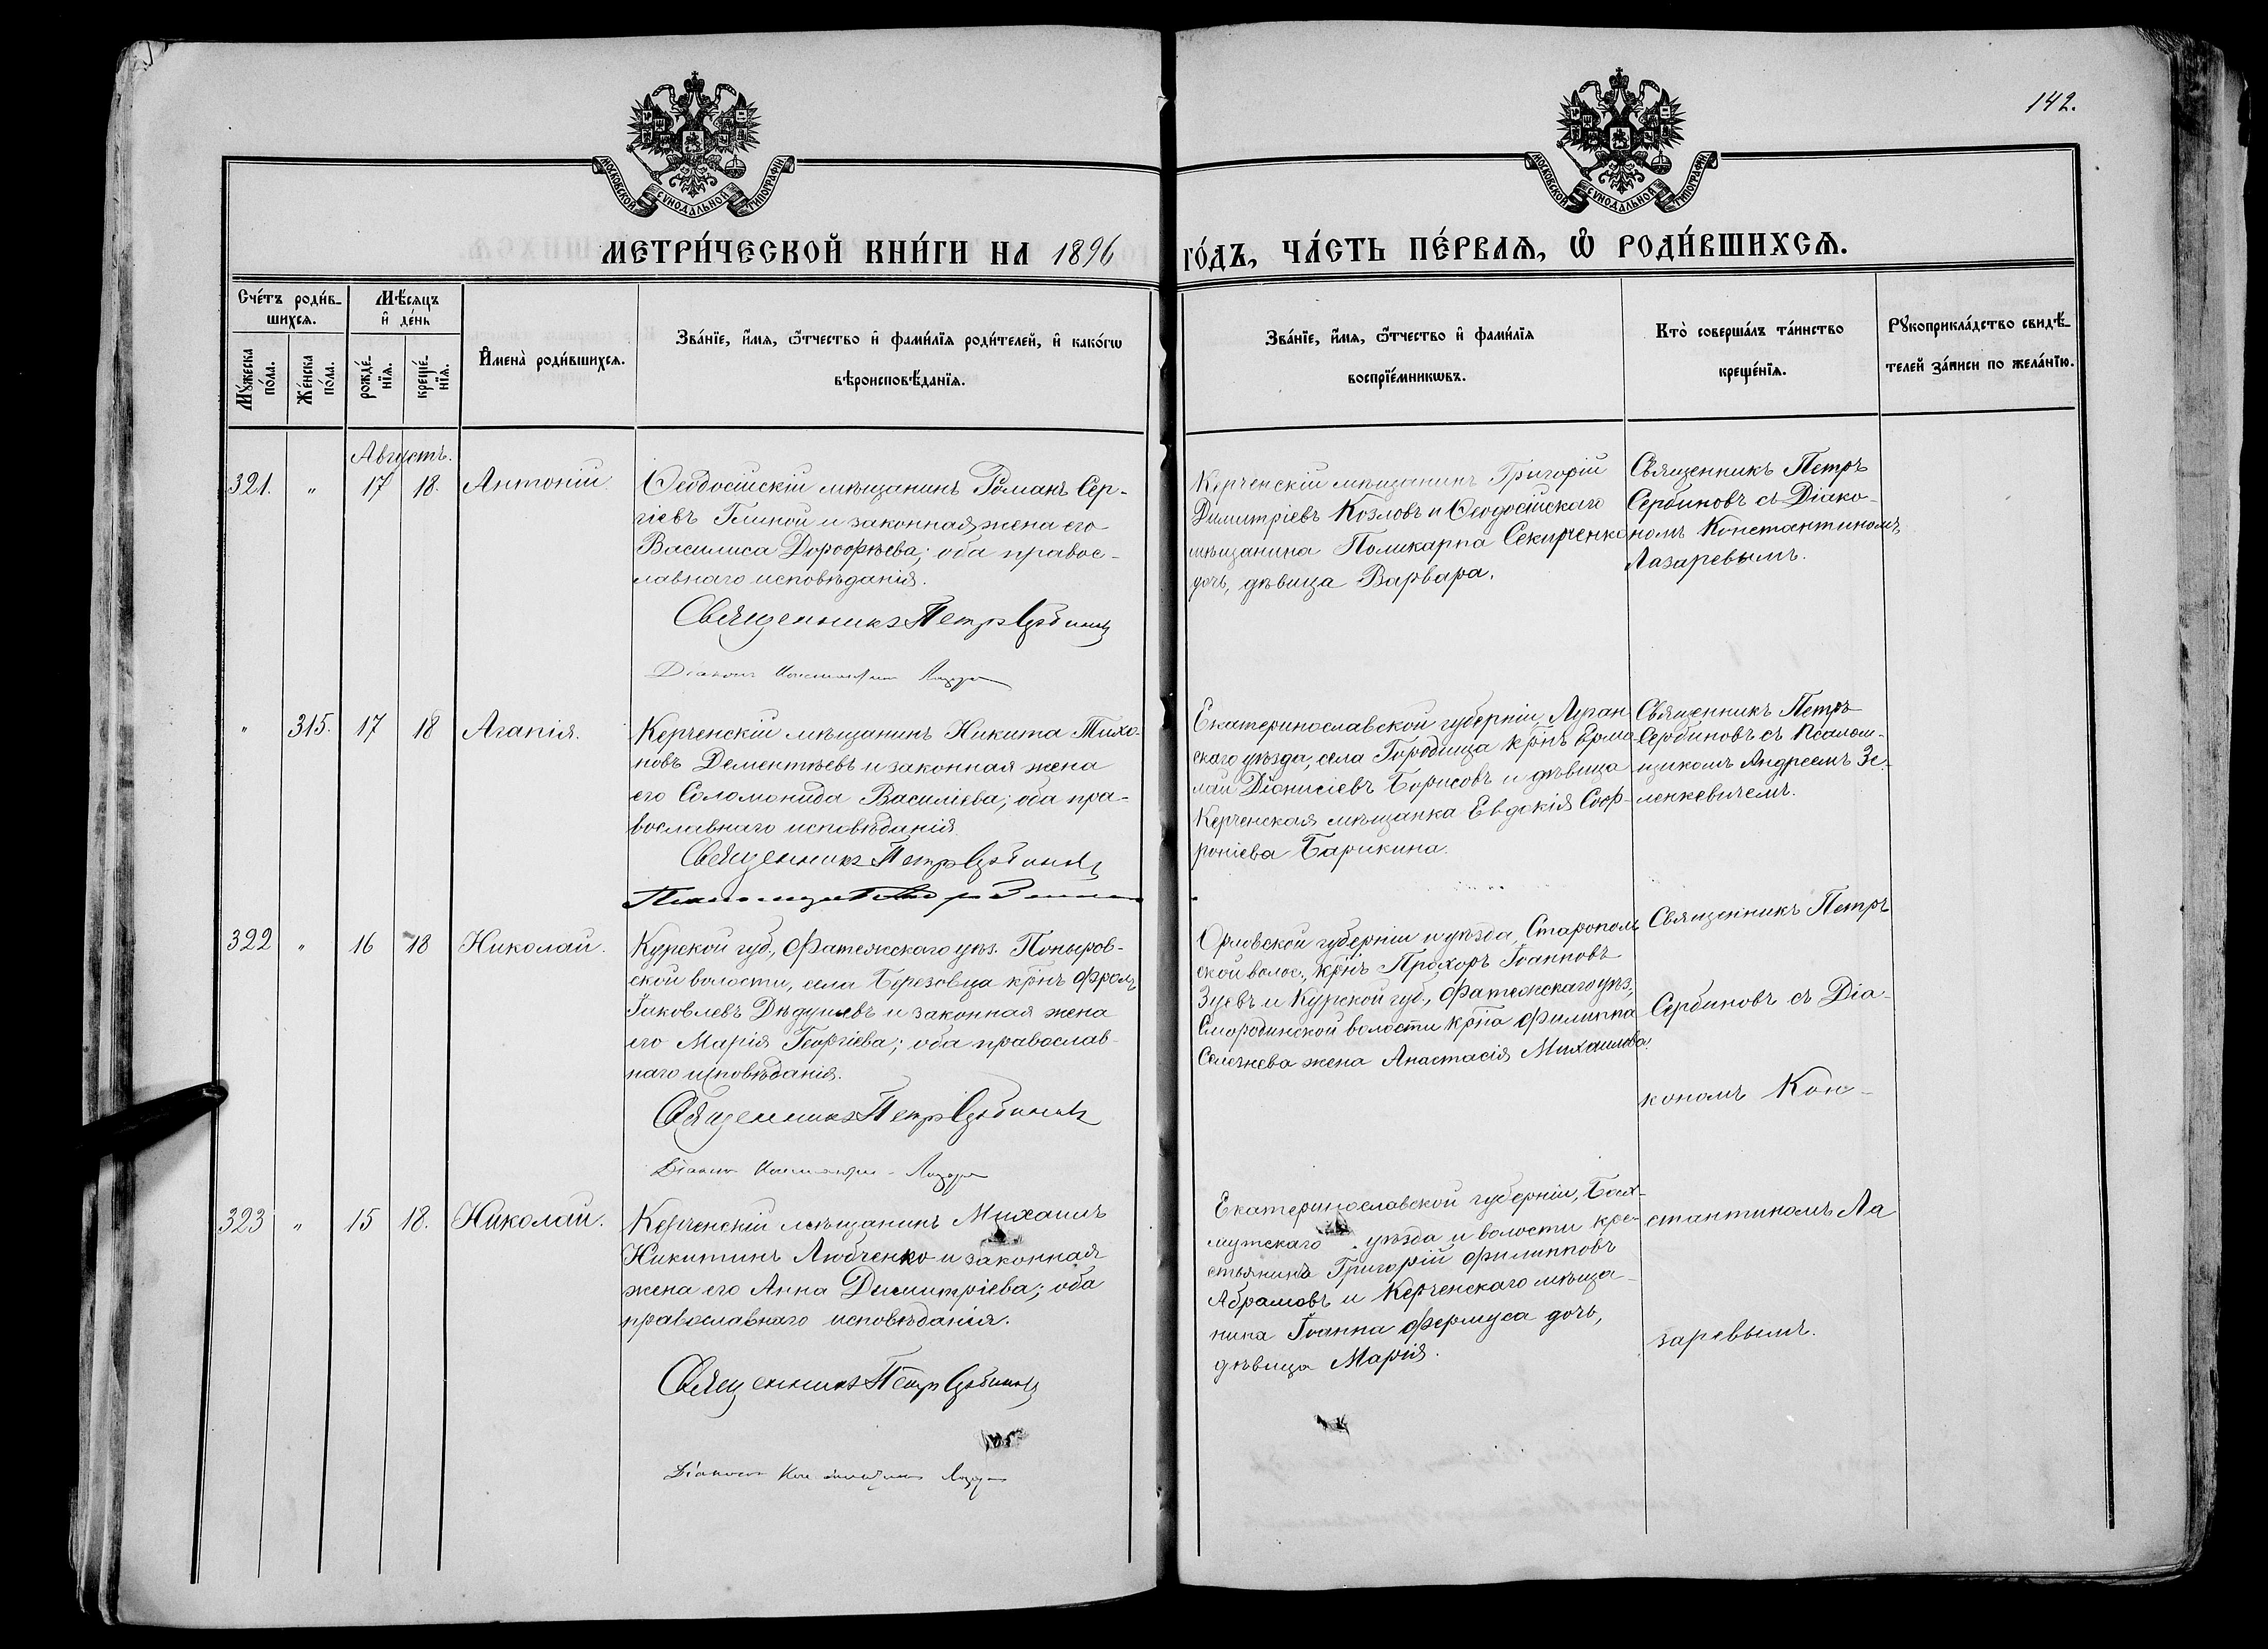 142.
МОСКОВСКОЙ СѴНОДАЛЬНОЙ ТИПОГРАФІИ
МОСКОВСКОЙ СѴНОДАЛЬНОЙ ТИПОГРАФІИ
МЕТРИ́ЧЕСКОЙ КНИ́ГИ НА 1896 ГО́ДЪ, ЧА́СТЬ ПЕ́РВАѦ, Ѽ РОДИ́ВШИХСѦ.
Счётъ роди́в-
шихсѧ.
Мѣ́сѧцъ
и҆ де́нь
Мꙋ́жеска
по́ла.
Же́нска
по́ла.
рожде́-
нїѧ.
креще́-
нїѧ.
И҆мена̀ роди́вшихсѧ.
Зва́нїе, и҆́мѧ, ѻ҆́тчество и҆ фами́лїѧ роди́телей, и҆ како́гѡ
вѣроисповѣ́данїѧ.
Зва́нїе, и҆́мѧ, ѻ҆́тчество и҆ фами́лїѧ
воспрїе́мникѡвъ.
Кто̀ соверша́лъ та́инство
креще́нїѧ.
Рꙋкоприкла́дство свидѣ́-
телей за́писи по жела́нїю.
Августъ.
321. " 17 18. Антоній.
Ѳеодосійскій мѣщанинъ Романъ Сер-
гіевъ Глиной и законная жена его
Василиса Дороѳѣева; оба правос-
лавнаго исповѣданія.
Священникъ Петръ Сербиновъ
Діаконъ Константинъ Лазарев
Керченскій мѣщанинъ Григорій
Димитріевъ Козловъ и Ѳеодосійскаго
мѣщанина Поликарпа Секирченко
дочь, дѣвица Варвара.
Священникъ Петръ
Сербиновъ съ Діако-
номъ Константиномъ
Лазаревымъ.
" 315. 17 18 Агапія.
Керченскій мѣщанинъ Никита Тихо-
новъ Дементѣевъ и законная жена
его Соломонида Василіева; оба пра-
вославнаго исповѣданія.
Священникъ Петръ Сербиновъ
Екатеринославской губерніи, Луган
скаго уѣзда, села Городища крнъ Ермо-
лай Діонисіевъ Борисовъ и дѣвица
Керченская мѣщанка Евдокія Соф-
роніева Барикина.
Священникъ Петръ
Сербиновъ съ Псалом-
щикомъ Андреемъ Зе-
ленкевичемъ.
322 " 16 18 Николай.
Курской губ., Фатежскаго уѣз. Поныров-
ской волости, села Березовца крнъ Фролъ
Іяковлевъ Дѣдушевъ и законная жена
его Марія Георгіева; оба православ-
наго исповѣданія.
Священникъ Петръ Сербиновъ
Діаконъ Константин Лазарев
Орловской губерніи и уѣзда, Старопол
ской волос., крнъ Прохоръ Іоанновъ
Зуевъ и Курской губ., Фатежскаго уѣз.,
Смородинской волости крна Филиппа
Селезнева жена Анастасія Михаилова.
Священникъ Петръ
Сербиновъ съ Діа-
кономъ Кон-
стантиномъ Ла
заревымъ.
323 " 15 18. Николай.
Керченскій мѣщанинъ Михаилъ
Никитинъ Любченко и законная
жена его Анна Димитріева; оба
православнаго исповѣданія.
Священникъ Петръ Сербиновъ
Діаконъ Константинъ Лазарев
Екатеринославской губерніи, Бах-
мутскаго уѣзда и волости кре-
стьянинъ Григорій Филипповъ
Абрамовъ и Керченскаго мѣща-
нина Іоанна Фермуса дочь,
дѣвица Марія.